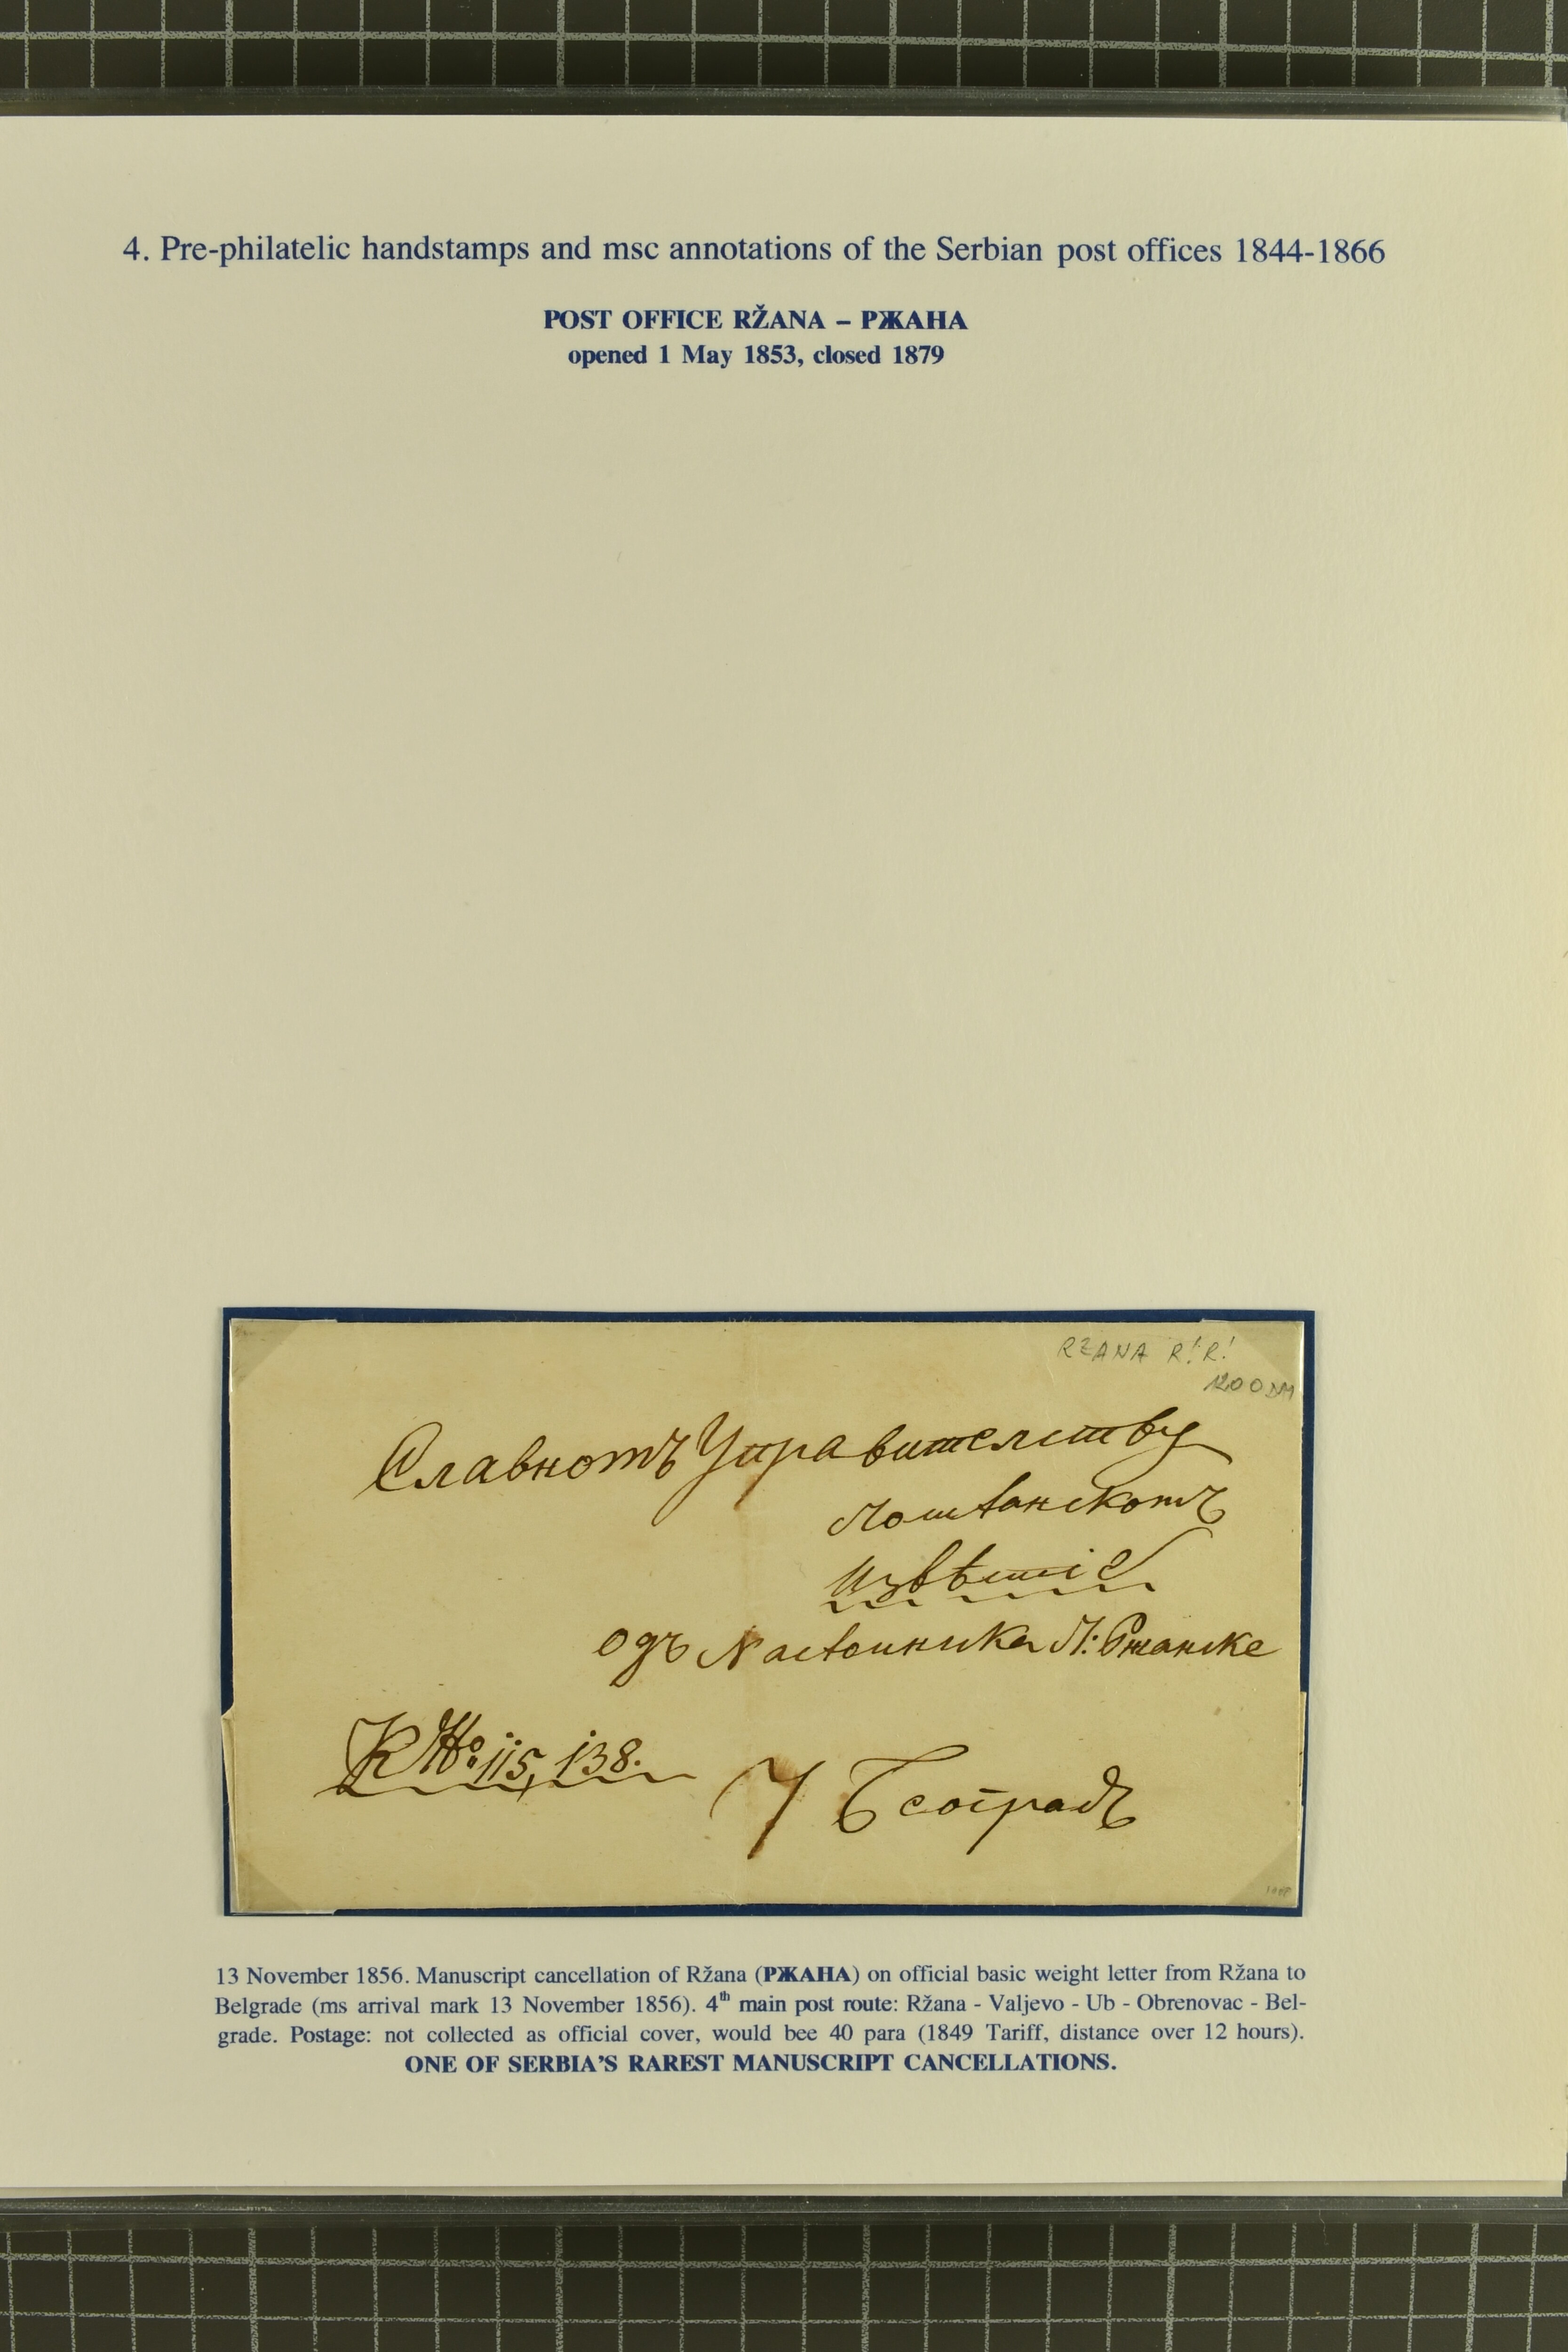 4. Pre-philatelic handstamps and msc annotations of the Serbian post offices 1844-1866
POST OFFICE RŽANA – РЖАНА
opened 1 May 1853, closed 1879
RZANA R! R!
1200 DM
Славномъ Управителству
Поштанскомъ
Извѣстіе
одъ Настоиника П: Ржанске
К №: 115, 138.
У Београдъ
13 November 1856. Manuscript cancellation of Ržana (РЖАНА) on official basic weight letter from Ržana to
Belgrade (ms arrival mark 13 November 1856). 4th main post route: Ržana - Valjevo - Ub - Obrenovac - Bel-
grade. Postage: not collected as official cover, would bee 40 para (1849 Tariff, distance over 12 hours).
ONE OF SERBIA'S RAREST MANUSCRIPT CANCELLATIONS.